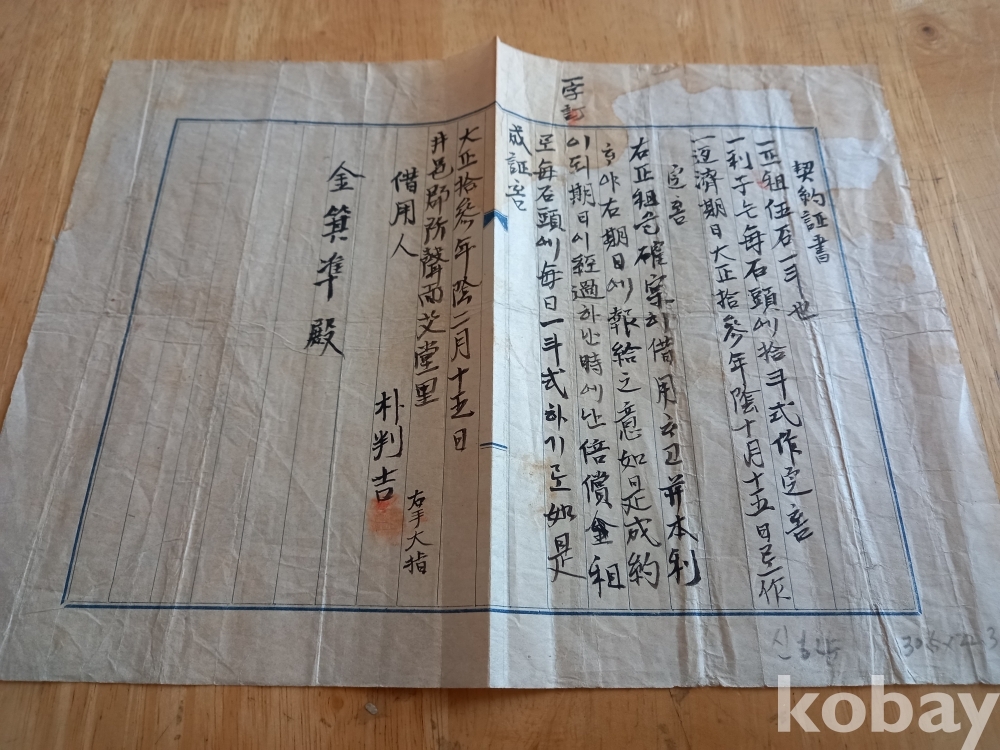 契約証書
一正租伍石一斗也
一利子는每石頭에拾斗式作定홈
一返濟期日大正拾參年陰十月十五日로作
定홈
右正租를確実히借用하고並本利
하야右期日에報給之意如是成約
이되期日이經過하난時에난倍償金租
로每石頭에每日一斗式하기로如是
成証홈
一字訂
大正拾參年陰二月十五日
井邑郡所聲面艾堂里
借用人 朴判吉
右手大指
金箕準殿
kobay